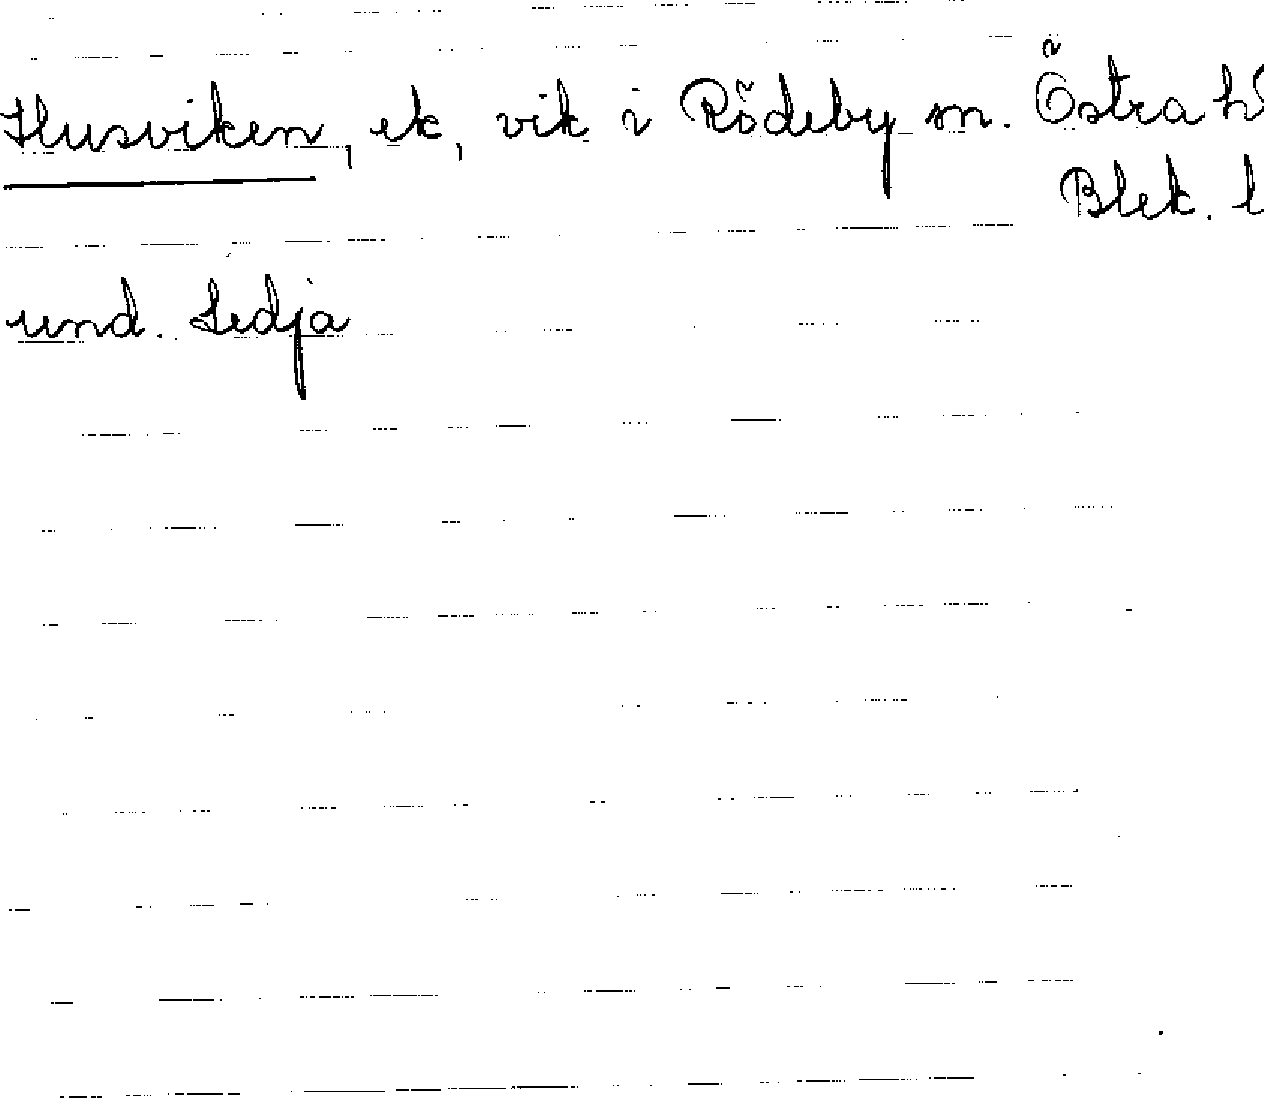 Husviken, ek, vik i Rödeby sn. Östra h
Blek. l
und. Ledja